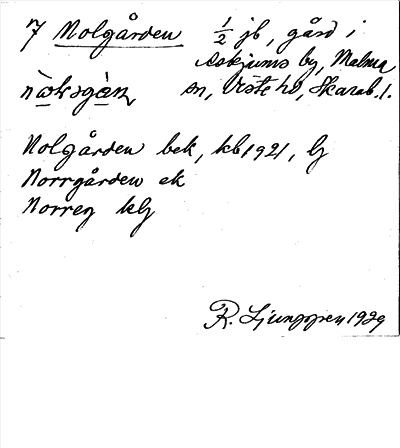 7 Nolgården ½ jb, gård i
Askjums by, Malma
sn, Viste hd, Skarab. l.
Nolgården bek, kb 1921, lj
Norrgården ek
Norreg klj
R. Ljunggren 1929